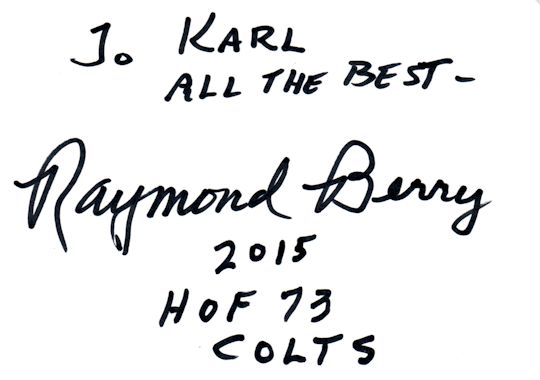 To KARL
ALL THE BEST-
Raymond Berry
2015
HOF 73
COLTS